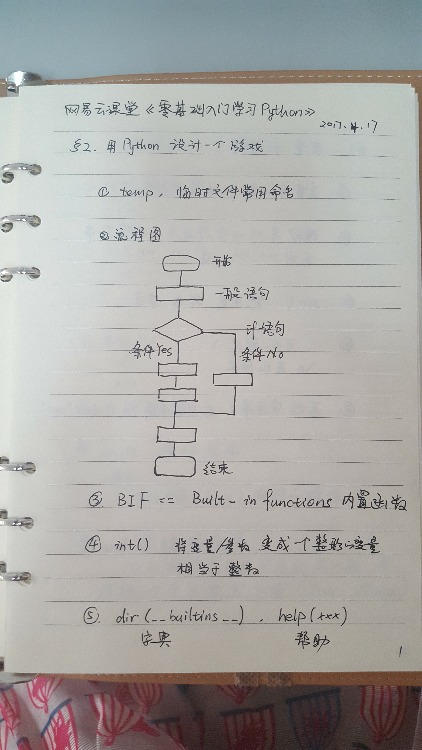 网易云课堂《零基础入门学习Python》
2017.4.17
§2. 用Python 设计一个游戏
① temp, 临时文件常用命名
② 流程图
开始
一般语句
if语句
条件Yes
条件No
结束
③ BIF == Built-in functions 内置函数
④ int() 将变量/参数 变成一个整形的变量
相当于整数
⑤. dir(__builtins__), help(xxx)
字典 帮助
1